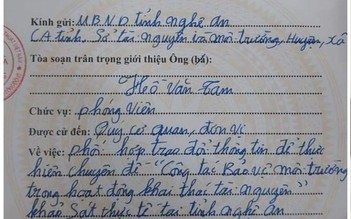 Kính gửi: U.B.N.D tỉnh nghệ an
CA tỉnh, Sở tài nguyên và môi trường, Huyện, xã
Tòa soạn trân trọng giới thiệu Ông (bà)
Hồ Văn Tam
Chức vụ: phóng viên
Được cử đến: Quý cơ quan, đơn vị
Về việc: phối hợp trao đổi thông tin để thực
hiện chuyên đề "Công tác Bảo vệ môi trường
trong hoạt động khai thác tài nguyên"
khảo sát thực tế tại tỉnh nghệ an